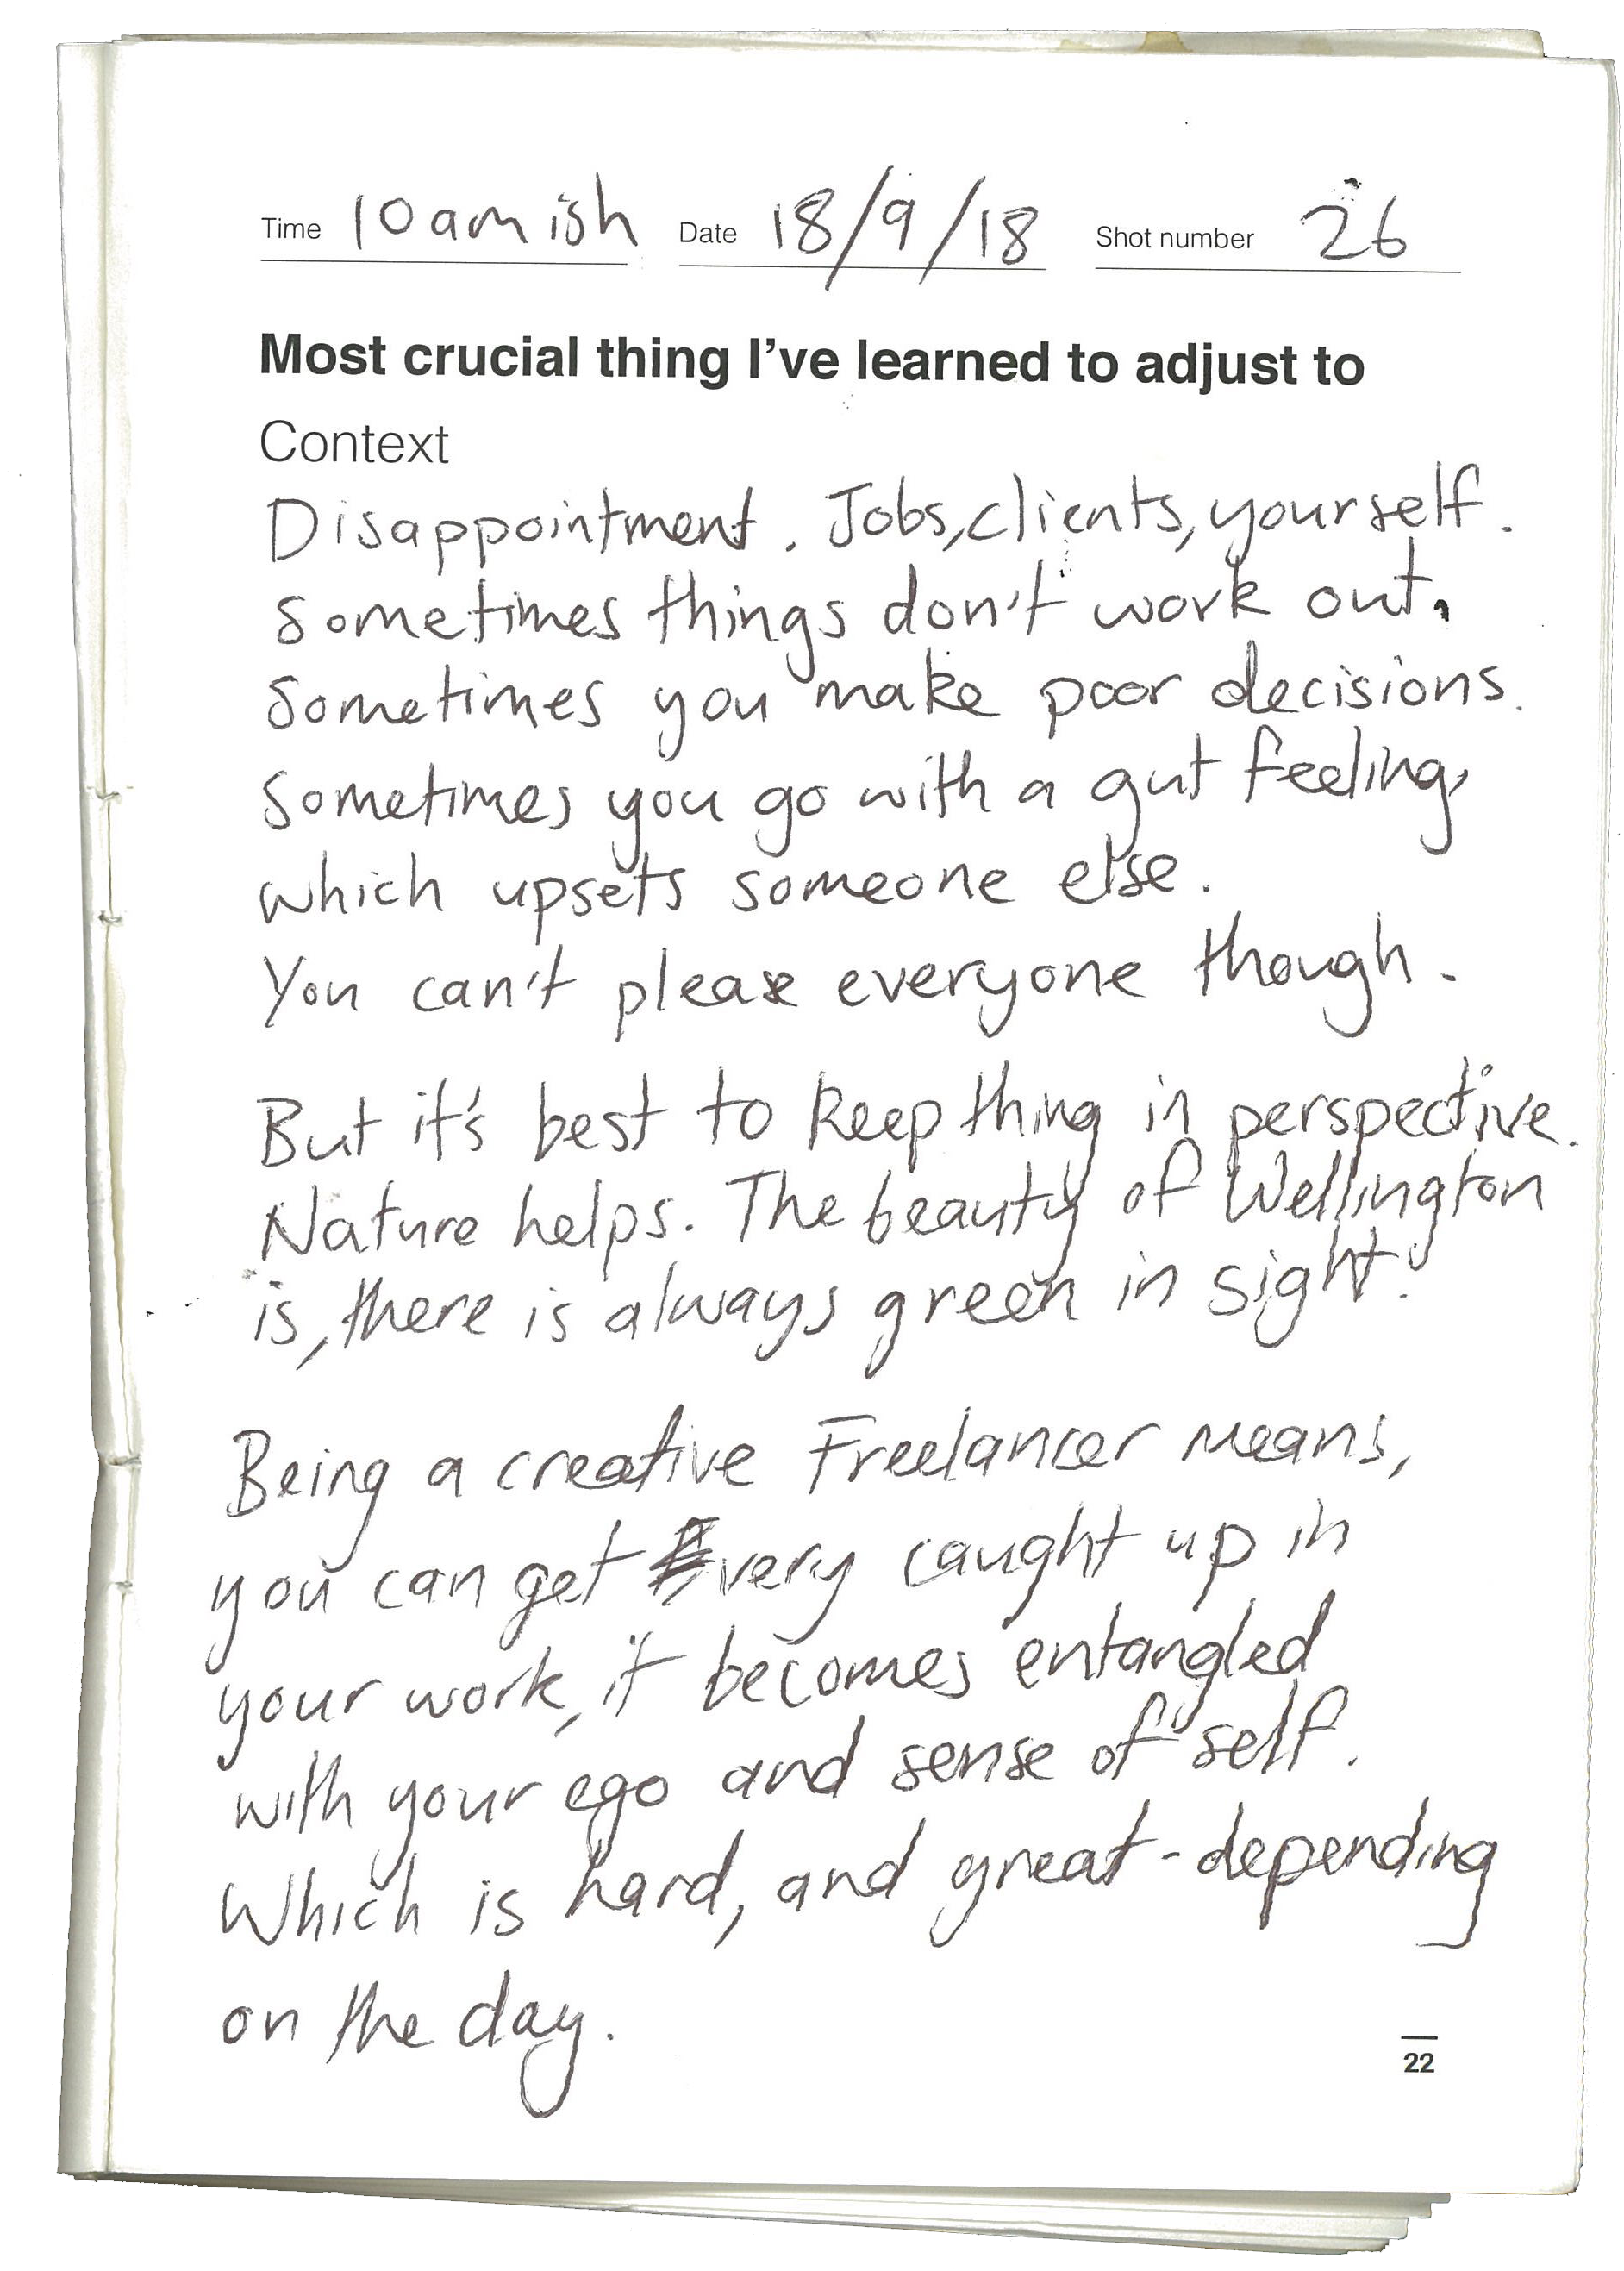 Time 10 am ish Date 18/9/18 Shot number 26
Most crucial thing I've learned to adjust to
Context
Disappointment. Jobs, clients, yourself.
Sometimes things don't work out.
Sometimes you make poor decisions.
Sometimes you go with a gut feeling,
which upsets someone else.
You can't please everyone though.
But it's best to keep thing in perspective.
Nature helps. The beauty of Wellington
is, there is always green in sight.
Being a creative Freelancer means,
you can get very caught up in
your work, it becomes entangled
with your ego and sense of self.
Which is hard, and great - depending
on the day.
22